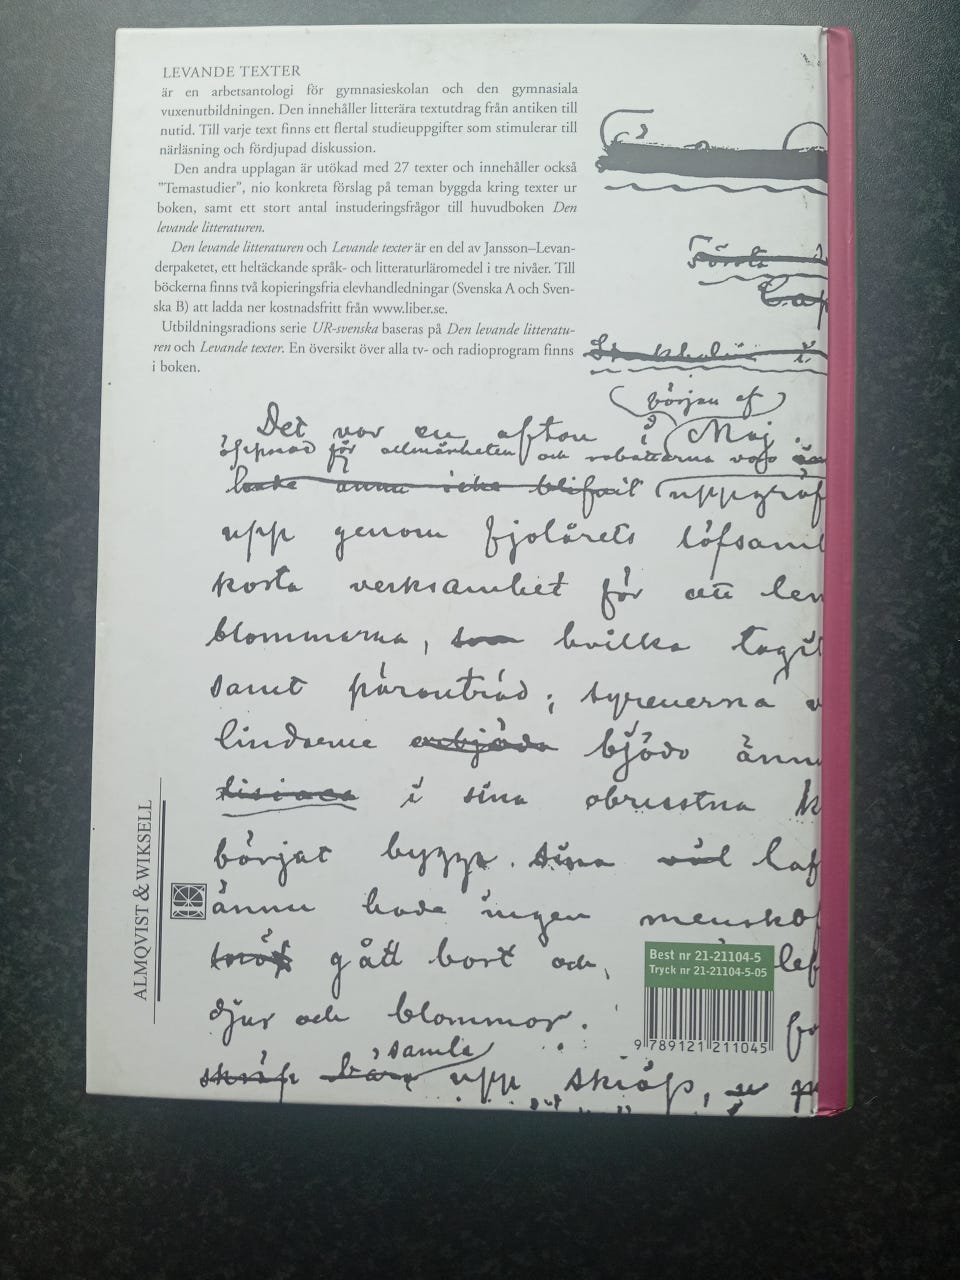 LEVANDE TEXTER
är en arbetsantologi för gymnasieskolan och den gymnasiala
vuxenutbildningen. Den innehåller litterära textutdrag från antiken till
nutid. Till varje text finns ett flertal studieuppgifter som stimulerar till
närläsning och fördjupad diskussion.
Den andra upplagan är utökad med 27 texter och innehåller också
”Temastudier”, nio konkreta förslag på teman byggda kring texter ur
boken, samt ett stort antal instuderingsfrågor till huvudboken Den
levande litteraturen.
Den levande litteraturen och Levande texter är en del av Jansson–Levan-
derpaketet, ett heltäckande språk- och litteraturläromedel i tre nivåer. Till
böckerna finns två kopieringsfria elevhandledningar (Svenska A och Sven-
ska B) att ladda ner kostnadsfritt från www.liber.se.
Utbildningsradions serie UR-svenska baseras på Den levande litteratu-
ren och Levande texter. En översikt över alla tv- och radioprogram finns
i boken.
Första
Cap
Stockholm i
början af
Det var en afton i Maj.
öppnad för allmänheten och rabatterna voro
hade ännu icke blifvit uppgräf
upp genom fjolårets löfsaml
korta verksamhet för att
blommorna, som hvilka tagit
samt päronträd; syrenerna
lindarne bjödo ännu
i sina obrustna k
börjat bygga. sina väl
ännu hade ingen menskof
gått bort och,
djur och blommor.
samla
upp skräp,
ALMQVIST & WIKSELL
Best nr 21-21104-5
Tryck nr 21-21104-5-05
9 789121 211045